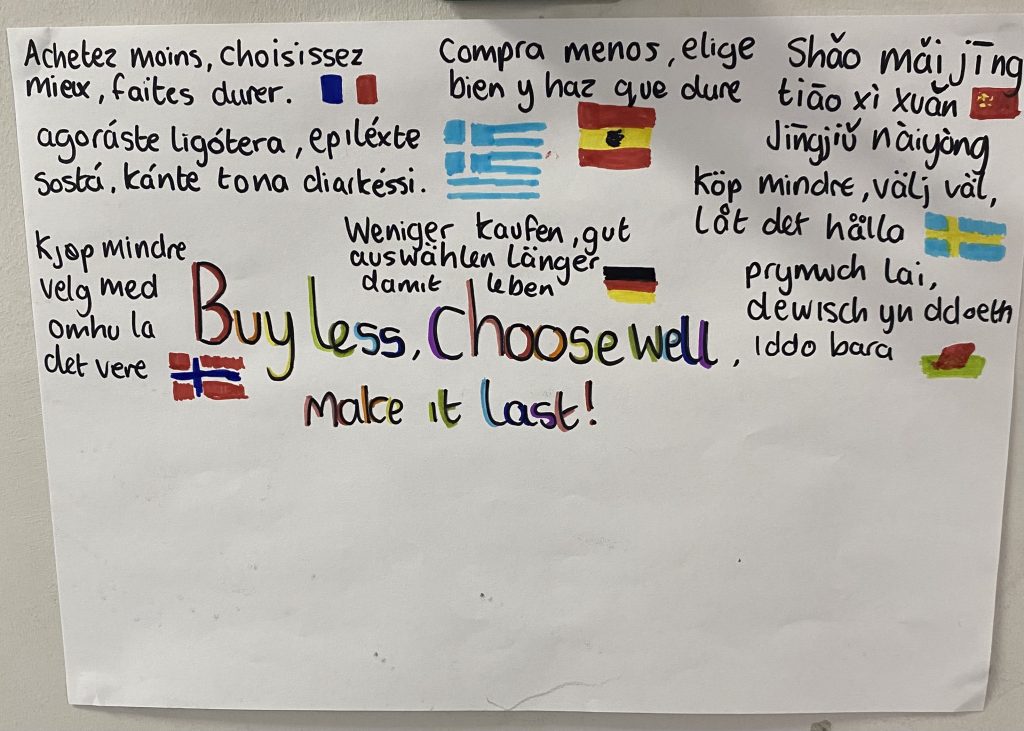 Achetez moins, choisissez
mieux, faites durer.
Compra menos, elige
bien y haz que dure
Shǎo mǎi jīng
tiāo xì xuǎn
Jīngjiǔ nàiyòng
agoráste ligótera, epiléxte
sostá, kánte tona diarkéssi.
köp mindre, välj väl,
låt det hålla
Kjøp mindre
velg med
omhu la
det vere
Weniger kaufen, gut
auswählen länger
damit leben
prynwch lai,
dewisch yn ddoeth
iddo bara
Buy less, Choose well,
make it last!